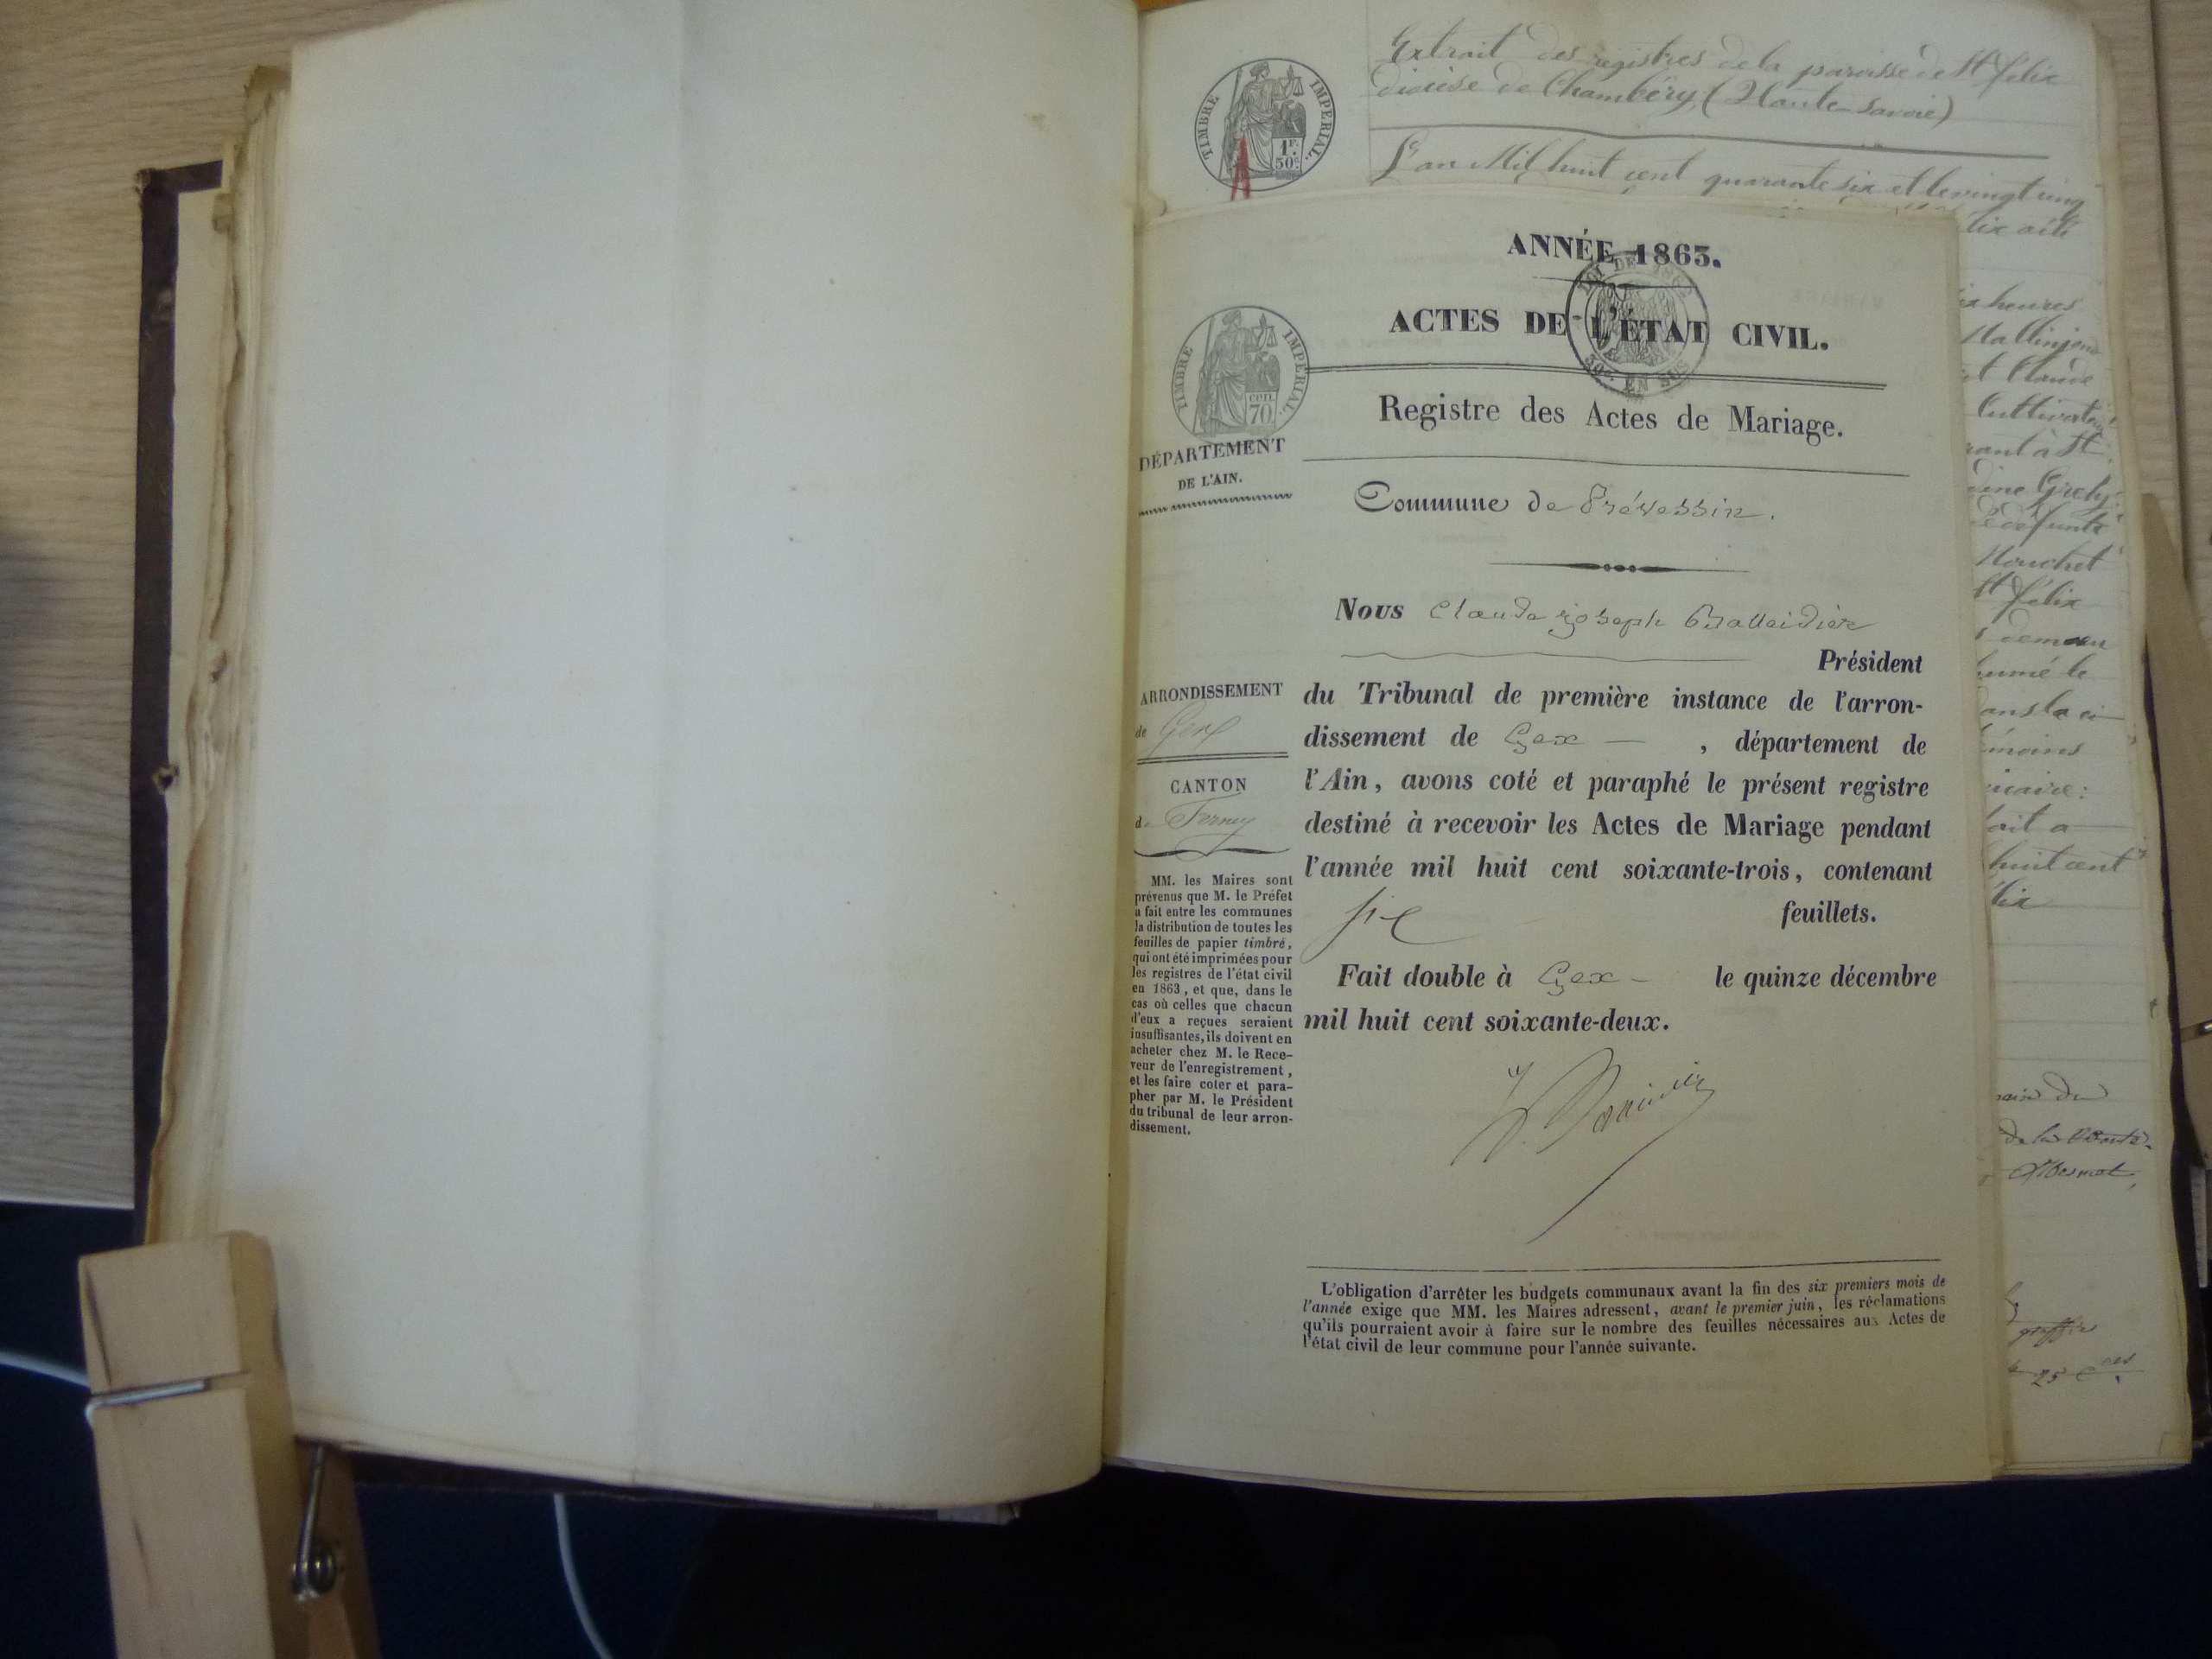 Extrait des registres de la paroisse de St félix
diocèse de Chambéry (Haute-Savoie)
L'an Mil huit cent quarante six et le vingt cinq
TIMBRE IMPERIAL.
1F.
50c.
ANNÉE 1863.
ACTES DE L'ÉTAT CIVIL.
LOI DE 1862
EN SUS
TIMBRE IMPERIAL.
CENT.
70
Registre des Actes de Mariage.
DÉPARTEMENT
DE L'AIN.
Commune de Prévessin.
Nous Claude Joseph
Président
du Tribunal de première instance de l'arron-
dissement de Gex — , département de
l'Ain, avons coté et paraphé le présent registre
destiné à recevoir les Actes de Mariage pendant
l'année mil huit cent soixante-trois, contenant
six feuillets.
Fait double à Gex - le quinze décembre
mil huit cent soixante-deux.
ARRONDISSEMENT
de Gex
CANTON
de Ferney
MM. les Maires sont
prévenus que M. le Préfet
a fait entre les communes
la distribution de toutes les
feuilles de papier timbré,
qui ont été imprimées pour
les registres de l'état civil
en 1863, et que, dans le
cas où celles que chacun
d'eux a reçues seraient
insuffisantes, ils doivent en
acheter chez M. le Rece-
veur de l'enregistrement,
et les faire coter et para-
pher par M. le Président
du tribunal de leur arron-
dissement.
L'obligation d'arrêter les budgets communaux avant la fin des six premiers mois de
l'année exige que MM. les Maires adressent, avant le premier juin, les réclamations
qu'ils pourraient avoir à faire sur le nombre des feuilles nécessaires aux Actes de
l'état civil de leur commune pour l'année suivante.
heures
t Claude
Cultivateur
rant à St
défunte
Mouchet
St félix
demeu
humé le
ans le ci
émoins
icaire:
fait a
huit cent
félix
de la
greffier
25 c